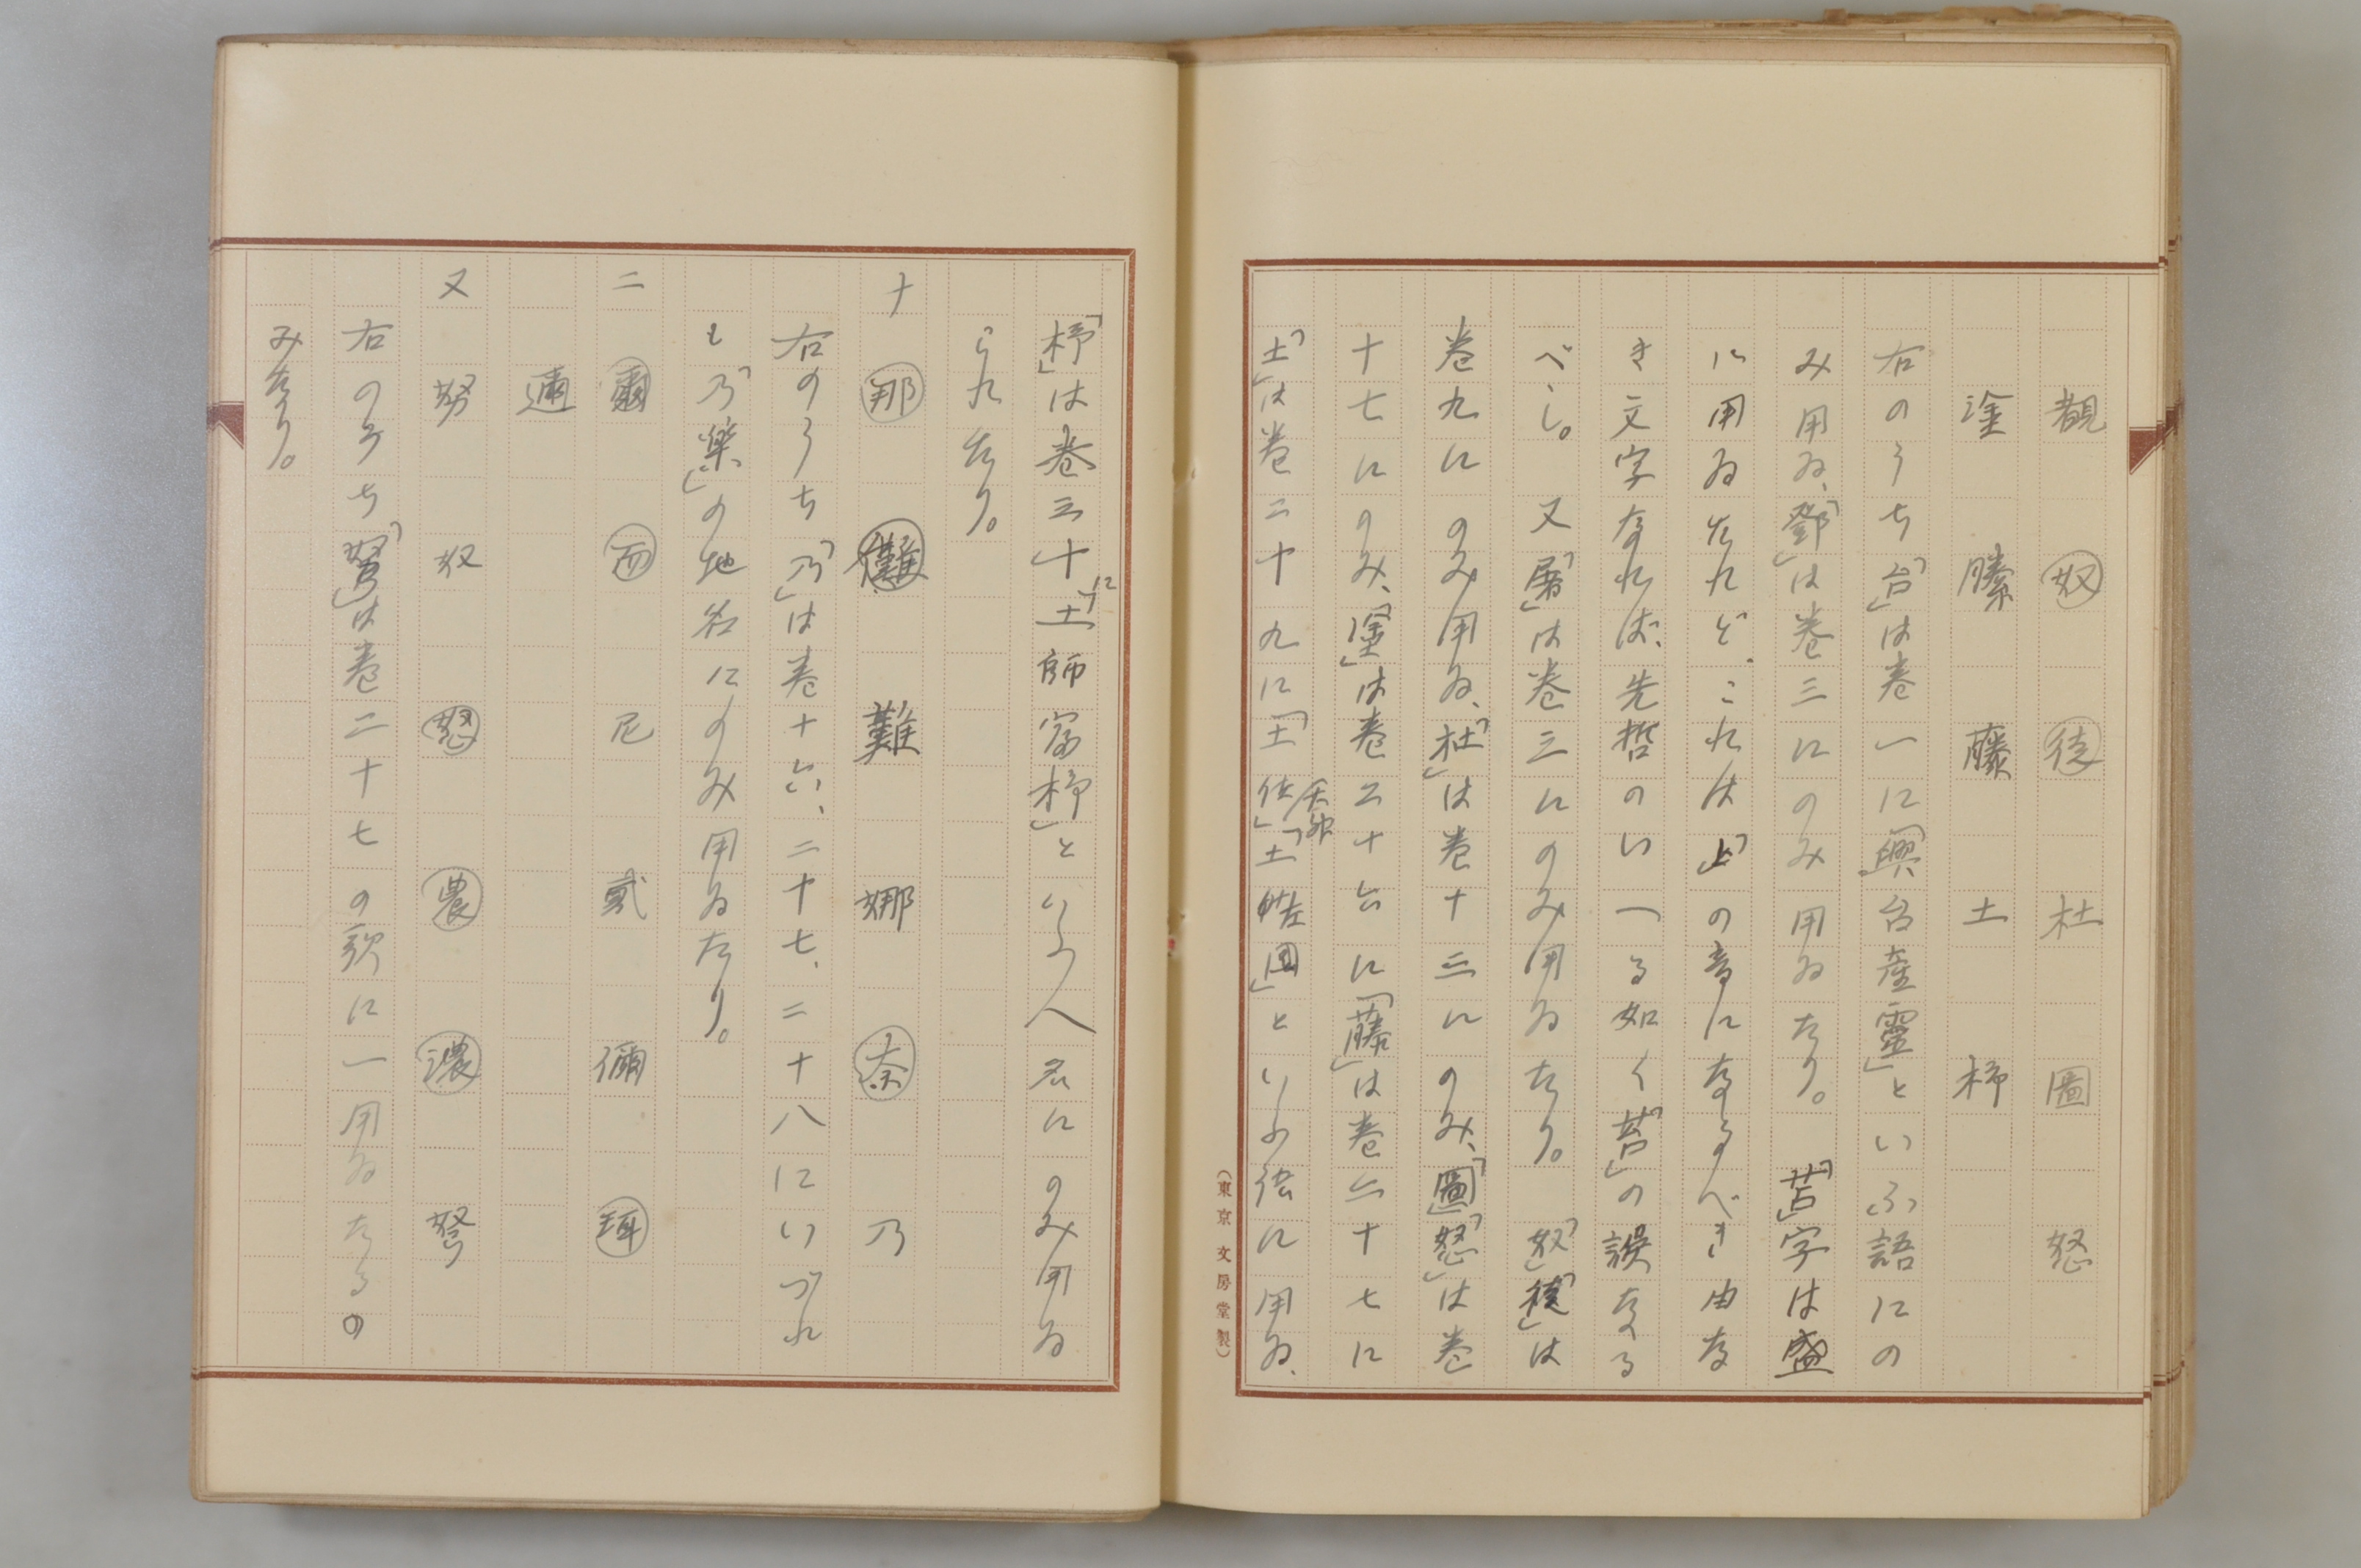 覩 奴 徒 杜 圖 怒
塗 縢 藤 土 杼
右のうち「台」は卷一に「興台産靈」といふ語にの
み用ゐ、「鄧」は卷三にのみ用ゐたり。「苫」字は盛
に用ゐたれど、これは「上」の音になるべき由な
き文字なれば、先哲のいへる如く「苔」の誤なる
べし。又「屠」は卷三にのみ用ゐたり。「奴」「徒」は
卷九にのみ用ゐ、「杜」は卷十三にのみ、「圖」「怒」は卷
十七にのみ、「塗」は卷二十六に「藤」は卷二十七に
「土」は卷二十九に「土佐」「土 國」といふ語に用ゐ、
(東京 文房堂製)
「杼」は卷三十に「土師富杼」といふ人名にのみ用ゐ
られたり。
ナ 那 儺 難 娜 奈 乃
右のうち「乃」は卷十六、二十七、二十八にいづれ
も「乃樂」の地名にのみ用ゐたり。
ニ 爾 而 尼 貳 儞 珥
邇
又 努 奴 怒 農 濃
右のうち「駑」は卷二十七の歌に一用ゐたるの
みなり。